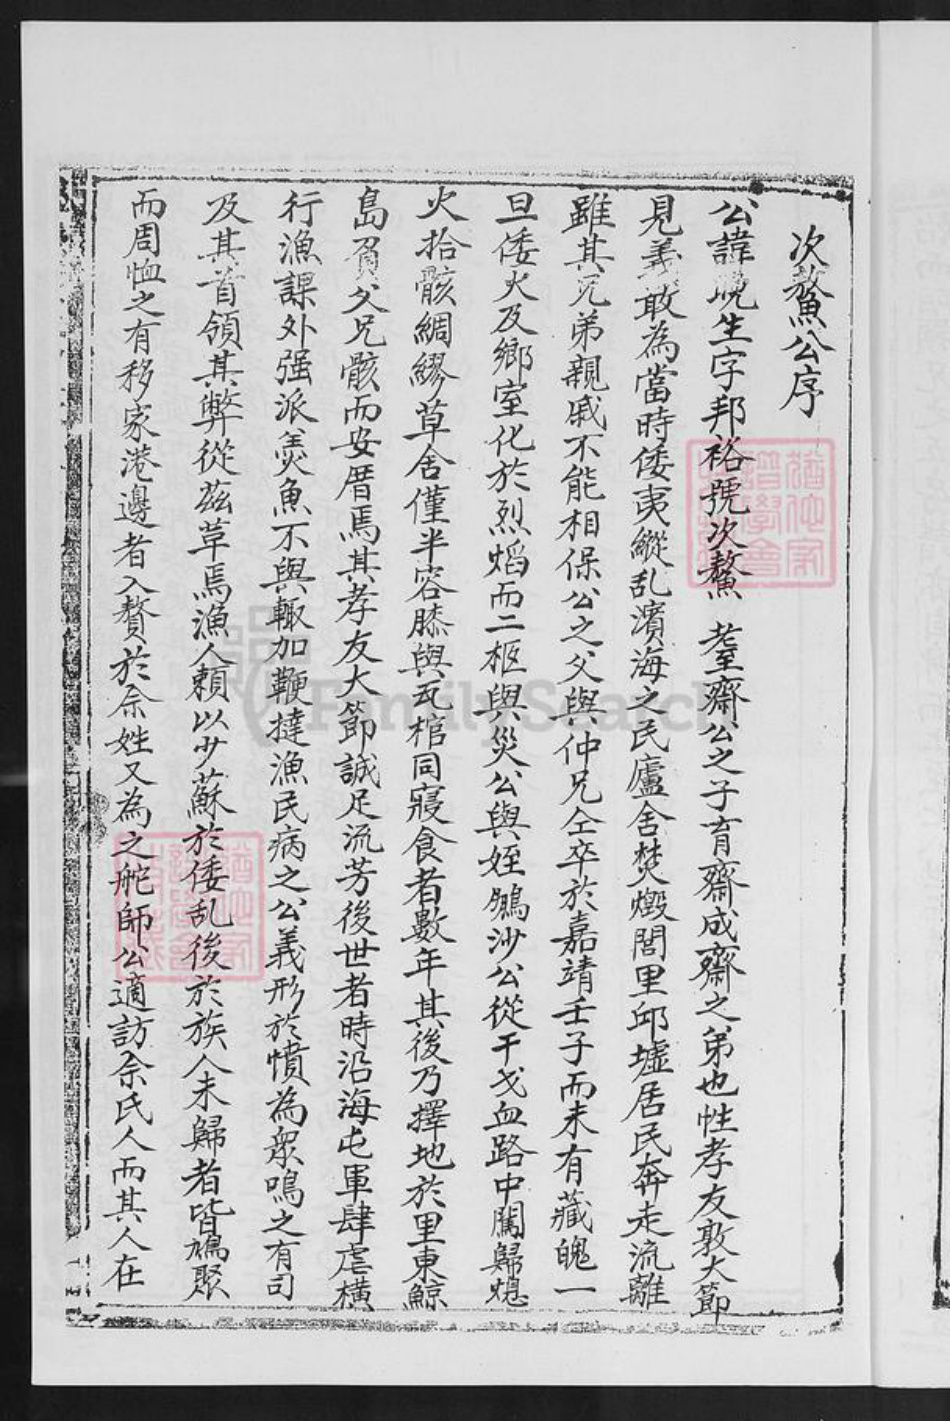 次鰲公序
公諱晚生字邦裕號次鰲 耋齋公之子育齋成齋之弟也性孝友敦大節
見義敢為當時倭夷縱乱濱海之民廬舍焚燬閭里邱墟居民奔走流離
雖其兄弟親戚不能相保公之父與仲兄仝卒於嘉靖壬子而未有藏魄一
旦倭火及鄉室化於烈熖而二柩與災公與姪鵬沙公從干戈血路中闖歸熄
火拾骸綢繆草舍僅半容膝與瓦棺同寢食者數年其後乃擇地於里東鯨
島負父兄骸而安厝焉其孝友大節誠足流芳後世者時沿海屯軍肆虐橫
行漁課外强派羙魚不與輙加鞭撻漁民病之公義形於憤為衆鳴之有司
及其首領其弊從茲草焉漁人賴以少蘇於倭乱後於族人未歸者皆鳩聚
而周恤之有移家港邊者入贅於余姓又為之舵師公適訪余氏人而其人在
FamilySearch